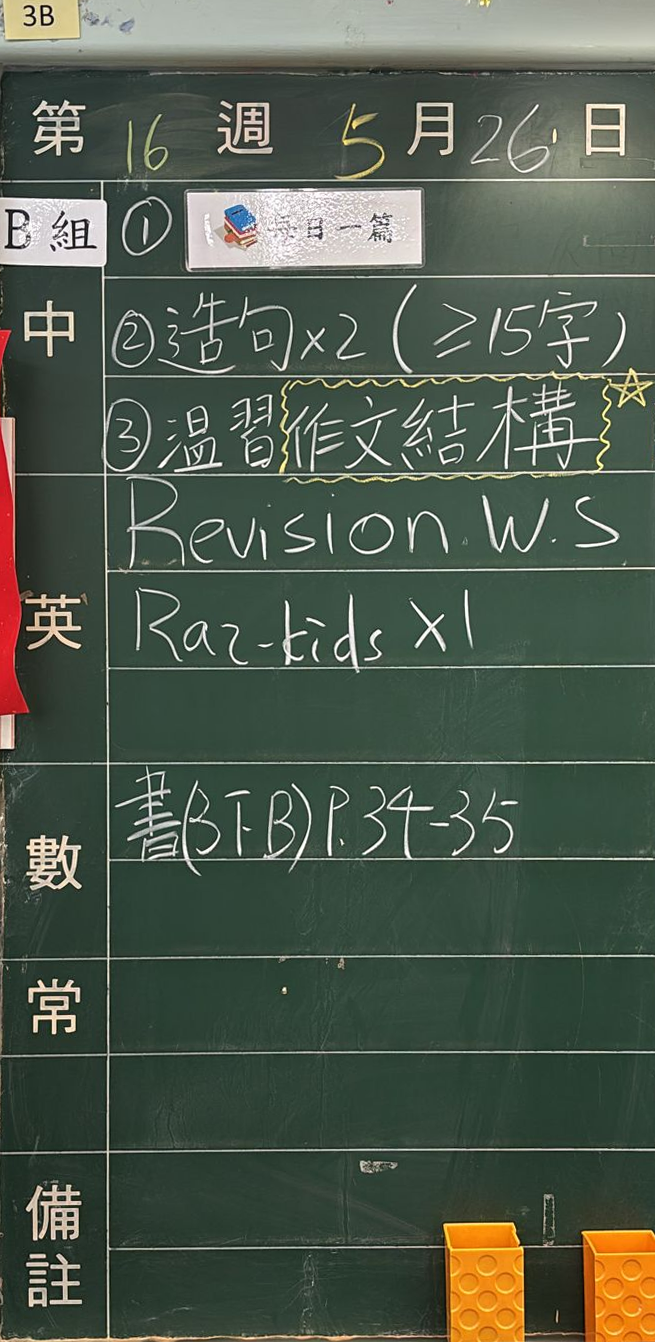 3B
第 16 週 5 月 26 日
B 組 ① 每日一篇
中 ② 造句x2 (≥15字)
③ 溫習作文結構
Revision W.S
英 Raz-kids x1
數 書(3下B) P.34-35
常
備註